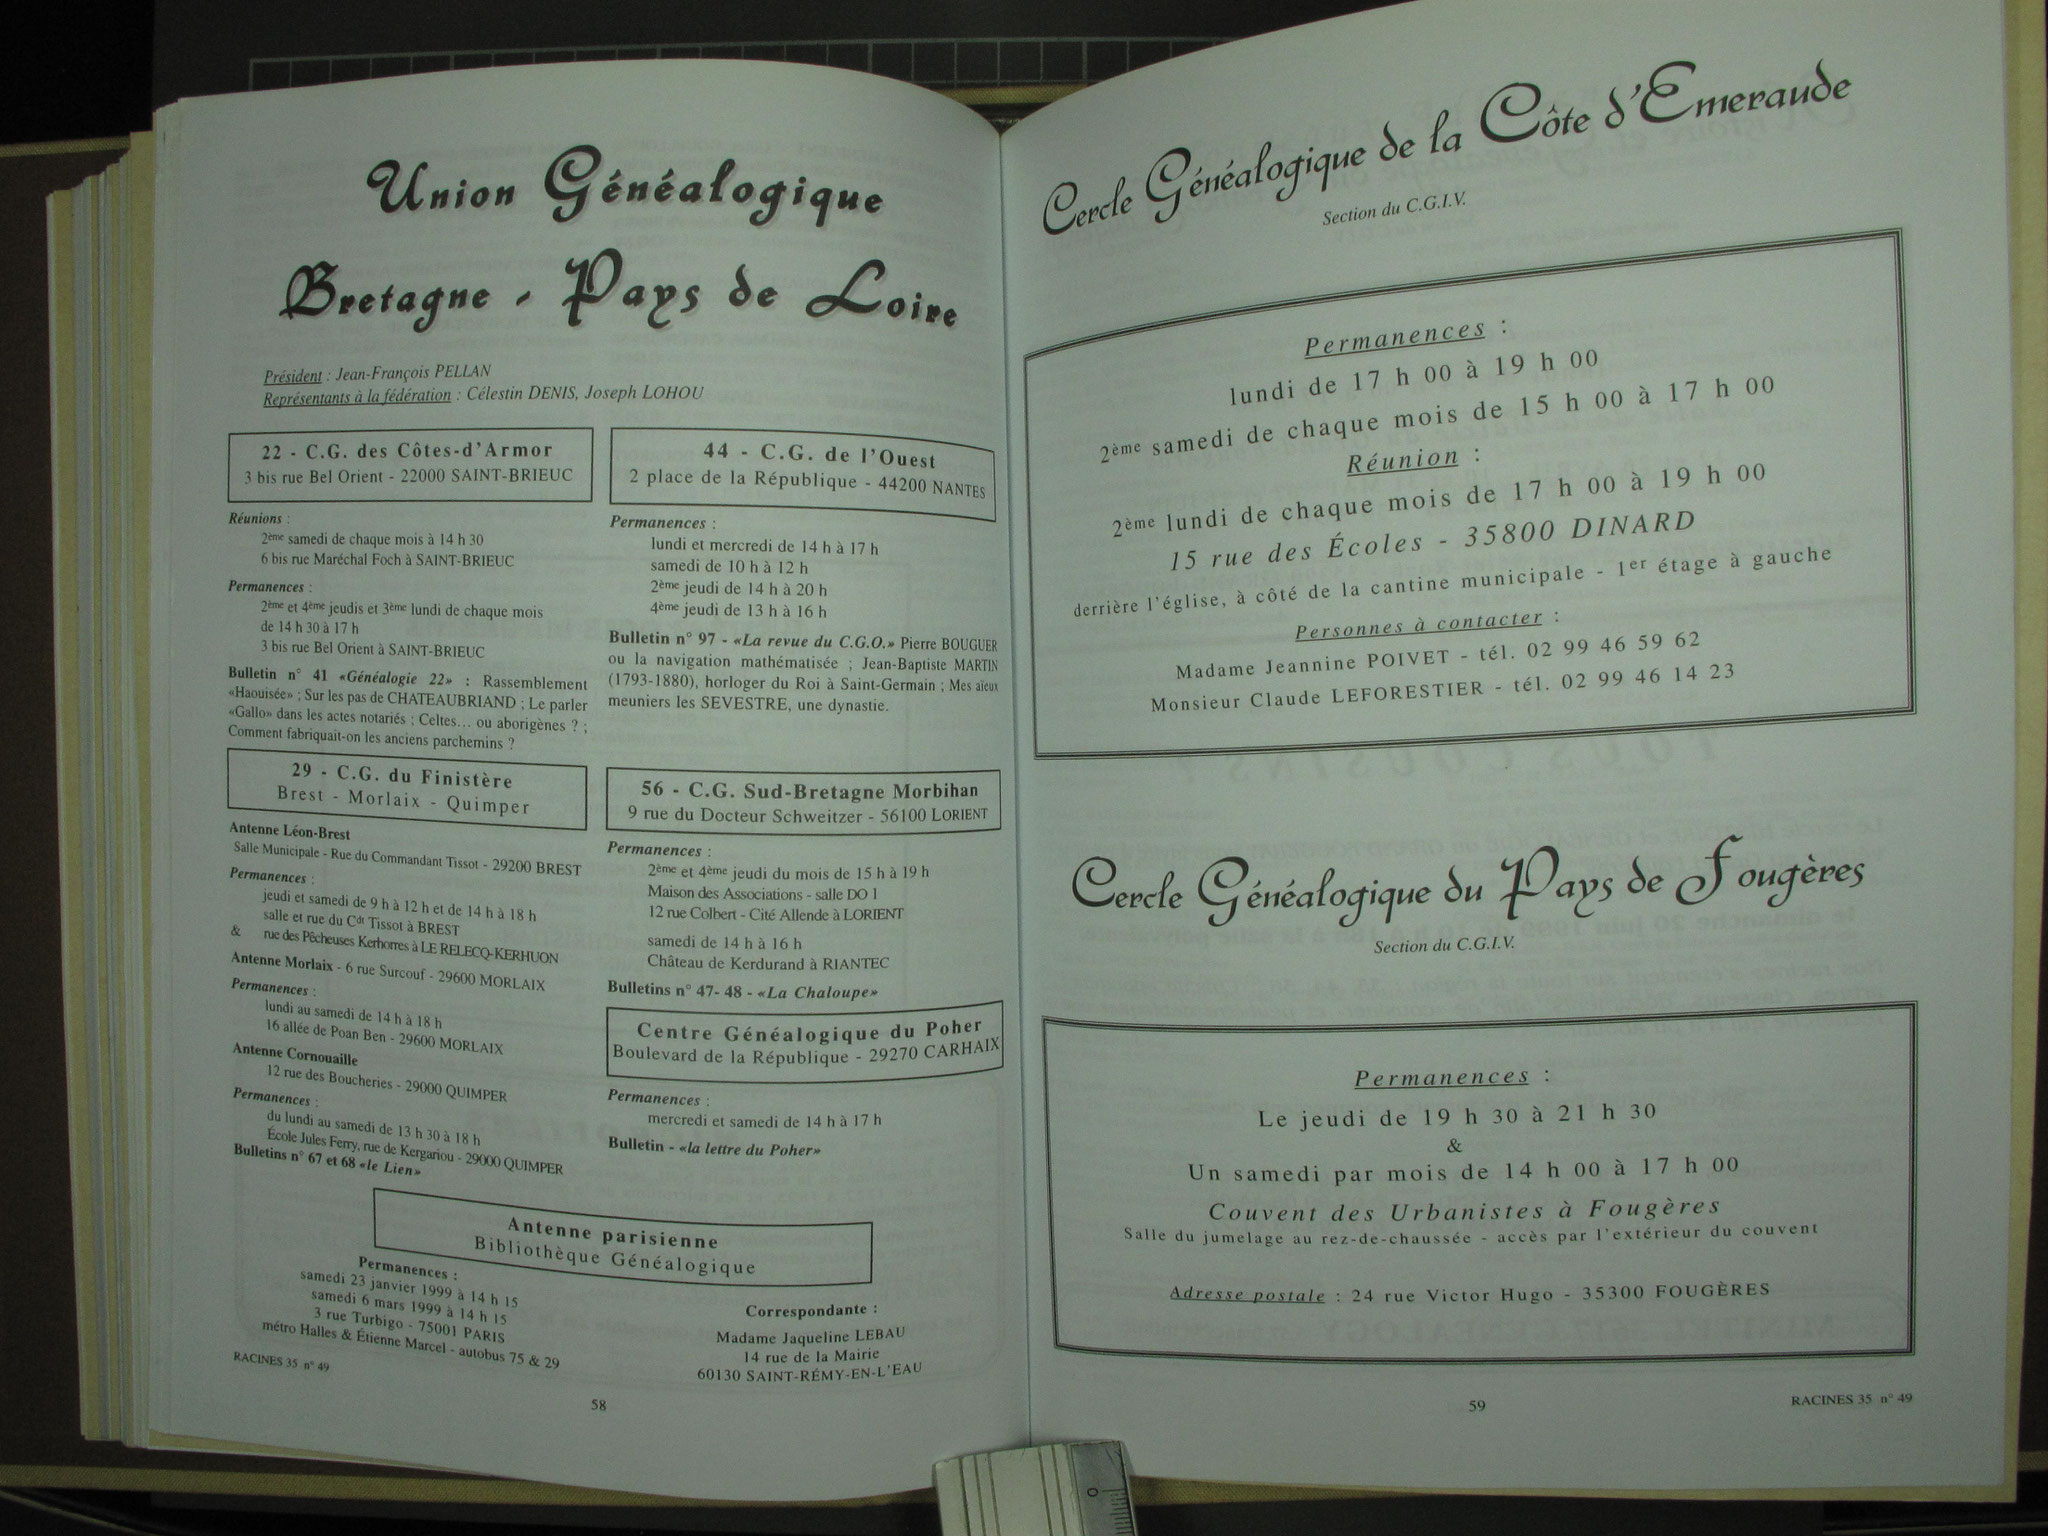 Union Généalogique
Bretagne - Pays de Loire
Président : Jean-François PELLAN
Représentants à la fédération : Célestin DENIS, Joseph LOHOU
22 - C.G. des Côtes-d'Armor
3 bis rue Bel Orient - 22000 SAINT-BRIEUC
Réunions :
2ème samedi de chaque mois à 14 h 30
6 bis rue Maréchal Foch à SAINT-BRIEUC
Permanences :
2ème et 4ème jeudis et 3ème lundi de chaque mois
de 14 h 30 à 17 h
3 bis rue Bel Orient à SAINT-BRIEUC
Bulletin n° 41 «Généalogie 22» : Rassemblement
«Haouisée» ; Sur les pas de CHATEAUBRIAND ; Le parler
«Gallo» dans les actes notariés ; Celtes... ou aborigènes ? ;
Comment fabriquait-on les anciens parchemins ?
29 - C.G. du Finistère
Brest - Morlaix - Quimper
Antenne Léon-Brest
Salle Municipale - Rue du Commandant Tissot - 29200 BREST
Permanences :
jeudi et samedi de 9 h à 12 h et de 14 h à 18 h
salle et rue du Cdt Tissot à BREST
& rue des Pêcheuses Kerhorres à LE RELECQ-KERHUON
Antenne Morlaix - 6 rue Surcouf - 29600 MORLAIX
Permanences :
lundi au samedi de 14 h à 18 h
16 allée de Poan Ben - 29600 MORLAIX
Antenne Cornouaille
12 rue des Boucheries - 29000 QUIMPER
Permanences :
du lundi au samedi de 13 h 30 à 18 h
École Jules Ferry, rue de Kergariou - 29000 QUIMPER
Bulletins n° 67 et 68 «le Lien»
44 - C.G. de l'Ouest
2 place de la République - 44200 NANTES
Permanences :
lundi et mercredi de 14 h à 17 h
samedi de 10 h à 12 h
2ème jeudi de 14 h à 20 h
4ème jeudi de 13 h à 16 h
Bulletin n° 97 - «La revue du C.G.O.» Pierre BOUGUER
ou la navigation mathématisée ; Jean-Baptiste MARTIN
(1793-1880), horloger du Roi à Saint-Germain ; Mes aïeux
meuniers les SEVESTRE, une dynastie.
56 - C.G. Sud-Bretagne Morbihan
9 rue du Docteur Schweitzer - 56100 LORIENT
Permanences :
2ème et 4ème jeudi du mois de 15 h à 19 h
Maison des Associations - salle DO 1
12 rue Colbert - Cité Allende à LORIENT
samedi de 14 h à 16 h
Château de Kerdurand à RIANTEC
Bulletins n° 47- 48 - «La Chaloupe»
Centre Généalogique du Poher
Boulevard de la République - 29270 CARHAIX
Permanences :
mercredi et samedi de 14 h à 17 h
Bulletin - «la lettre du Poher»
Antenne parisienne
Bibliothèque Généalogique
Permanences :
samedi 23 janvier 1999 à 14 h 15
samedi 6 mars 1999 à 14 h 15
3 rue Turbigo - 75001 PARIS
métro Halles & Étienne Marcel - autobus 75 & 29
Correspondante :
Madame Jaqueline LEBAU
14 rue de la Mairie
60130 SAINT-RÉMY-EN-L'EAU
RACINES 35 n° 49
58
Cercle Généalogique de la Côte d'Emeraude
Section du C.G.I.V.
Permanences :
lundi de 17 h 00 à 19 h 00
2ème samedi de chaque mois de 15 h 00 à 17 h 00
Réunion :
2ème lundi de chaque mois de 17 h 00 à 19 h 00
15 rue des Écoles - 35800 DINARD
derrière l'église, à côté de la cantine municipale - 1er étage à gauche
Personnes à contacter :
Madame Jeannine POIVET - tél. 02 99 46 59 62
Monsieur Claude LEFORESTIER - tél. 02 99 46 14 23
Cercle Généalogique du Pays de Fougères
Section du C.G.I.V.
Permanences :
Le jeudi de 19 h 30 à 21 h 30
&
Un samedi par mois de 14 h 00 à 17 h 00
Couvent des Urbanistes à Fougères
Salle du jumelage au rez-de-chaussée - accès par l'extérieur du couvent
Adresse postale : 24 rue Victor Hugo - 35300 FOUGÈRES
59
RACINES 35 n° 49
0